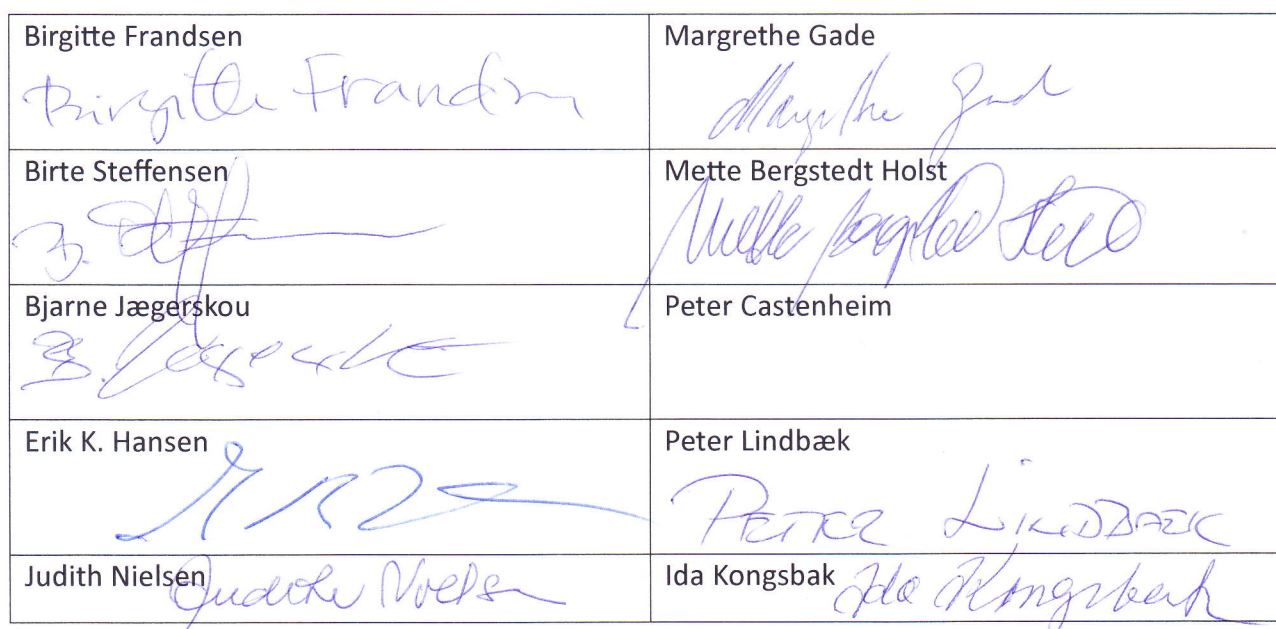 Birgitte Frandsen
Birgitte Frandsen
Margrethe Gade
Margrethe Gade
Birte Steffensen
B.
Mette Bergstedt Holst
Mette
Bjarne Jægerskou
B.
Peter Castenheim
Erik K. Hansen
Peter Lindbæk
PETER LINDBÆK
Judith Nielsen
Judith Nielsen
Ida Kongsbak
Ida Kongsbak